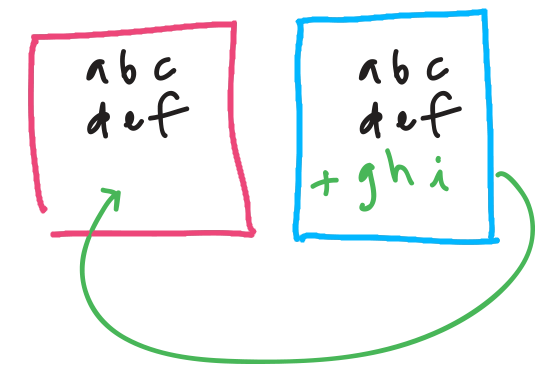 abc
def
abc
def
+ghi